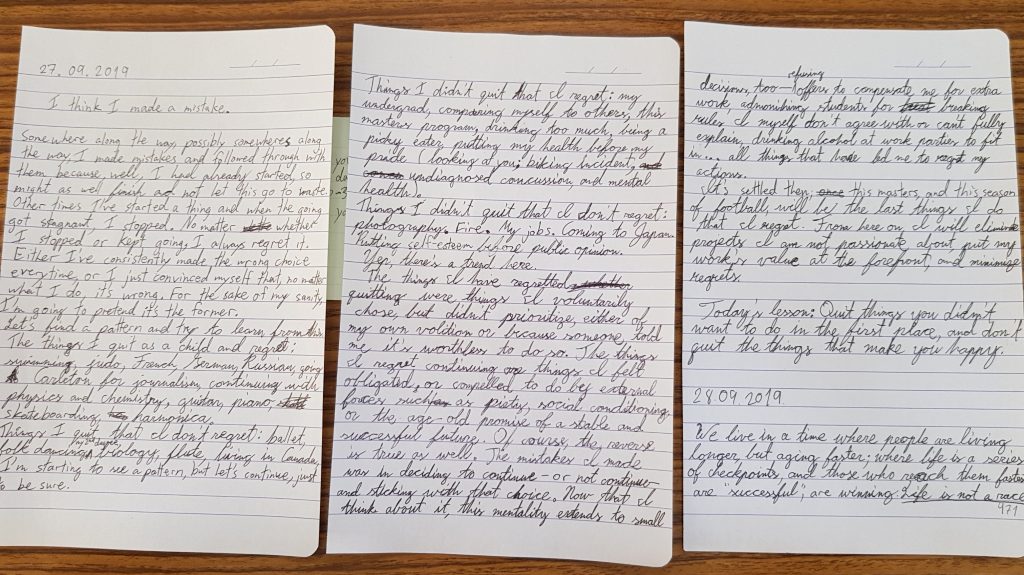 27.09.2019
I think I made a mistake.
Somewhere along the way, possibly somewheres along
the way, I made mistakes and followed through with
them because well, I had already started, so
might as well not let this go to waste.
Other times I've started a thing and when the going
got stagnant, I stopped. No matter whether
I stopped or kept going, I always regret it.
Either I've consistently made the wrong choice
everytime, or I just convinced myself that, no matter
what I do, it's wrong. For the sake of my sanity
I'm going to pretend it's the former.
Let's find a pattern and try to learn from this.
The things I quit as a child and regret:
swimming, judo, French, German, Russian, going
to Carleton for journalism, continuing with
physics and chemistry, guitar, piano,
skateboarding, harmonica.
Things I quit that I don't regret: ballet,
folk dancing, biology, flute, living in Canada,
I'm starting to see a pattern, but let's continue, just
to be sure.
Things I didn't quit that I regret: my
undergrad, comparing myself to others, this
masters program, drinking too much, being a
picky eater, putting my health before my
pride (looking at you: biking incident,
undiagnosed concussion, and mental
health).
Things I didn't quit that I don't regret:
photography. Fire. My jobs. Coming to Japan.
Putting self-esteem before public opinion.
Yep, there's a trend here.
The things I have regretted
quitting were things I voluntarily
chose, but didn't prioritize, either of
my own volition or because someone told
me it's worthless to do so. The things
I regret continuing are things I felt
obligated, or compelled to do by external
forces such as piety, social conditioning,
or the age-old promise of a stable and
successful future. Of course, the reverse
is true as well. The mistakes I made
was in deciding to continue - or not continue -
and sticking with that choice. Now that I
think about it, this mentality extends to small
decisions, too - refusing offers to compensate me for extra
work, admonishing students for breaking
rules I myself don't agree with or can't fully
explain, drinking alcohol at work parties to fit
in... all things that have led me to regret my
actions.
It's settled then, this masters, and this season
of football, will be the last things I do
that I regret. From here on, I will eliminate
projects I am not passionate about, put my
work's value at the forefront, and minimize
regrets.
Today's lesson: Quit things you didn't
want to do in the first place, and don't
quit the things that make you happy.
28.09.2019
We live in a time where people are living
longer, but aging faster; where life is a series
of checkpoints, and those who reach them faster
are "successful", are winning. Life is not a race.
971